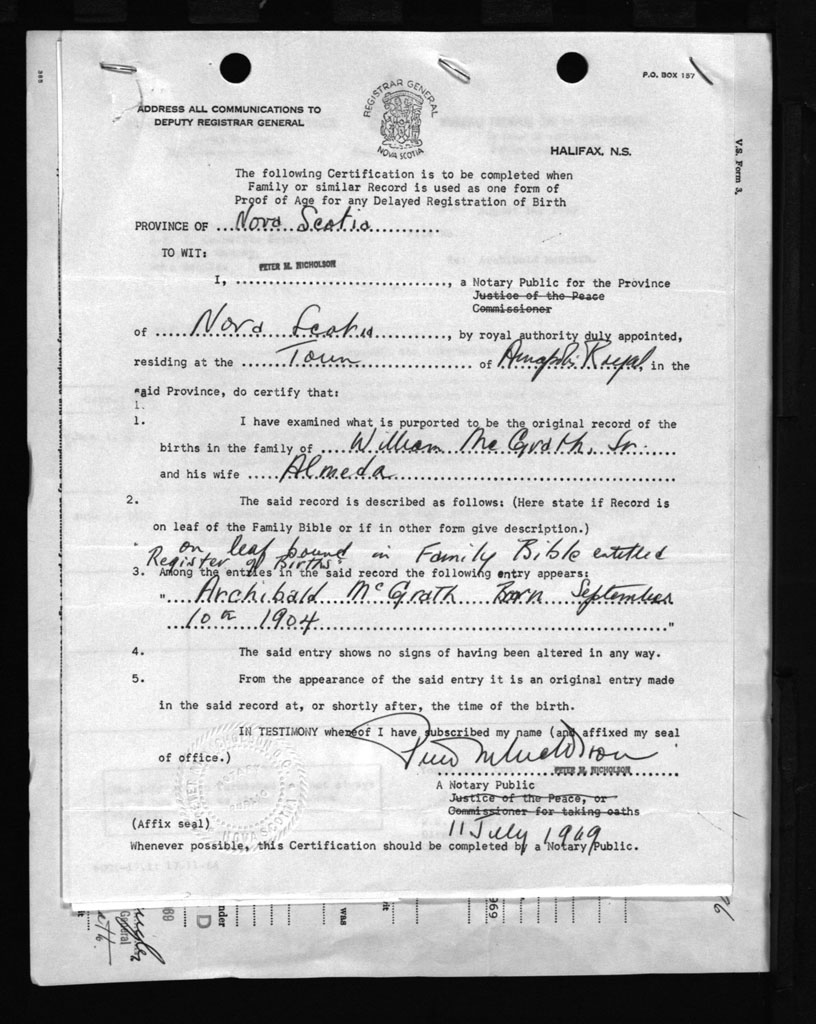 P.O. BOX 157
REGISTRAR GENERAL
NOVA SCOTIA
ADDRESS ALL COMMUNICATIONS TO
DEPUTY REGISTRAR GENERAL
HALIFAX, N.S.
V.S. Form 3.
The following Certification is to be completed when
Family or similar Record is used as one form of
Proof of Age for any Delayed Registration of Birth
PROVINCE OF ...Nova Scotia...
TO WIT:
PETER M. NICHOLSON
I, ..............................., a Notary Public for the Province
Justice of the Peace
Commissioner
of ....Nova Scotia..........., by royal authority duly appointed,
residing at the ......Town................ of Annapolis Royal, in the
said Province, do certify that:
1.
1. I have examined what is purported to be the original record of the
births in the family of ....William McGrath, Sr.....
and his wife ....Almeda....................
2. The said record is described as follows: (Here state if Record is
on leaf of the Family Bible or if in other form give description.)
" on leaf bound in Family Bible entitled
Register of Births"
3. Among the entries in the said record the following entry appears:
"....Archibald McGrath Born September
...10th 1904..............................."
4. The said entry shows no signs of having been altered in any way.
5. From the appearance of the said entry it is an original entry made
in the said record at, or shortly after, the time of the birth.
IN TESTIMONY whereof I have subscribed my name (and affixed my seal
of office.)
Peter M Nicholson
PETER M. NICHOLSON
A Notary Public
Justice of the Peace, or
Commissioner for taking oaths
(Affix seal)
11 July 1969
Whenever possible, this Certification should be completed by a Notary Public.
General
D
nder
was
969